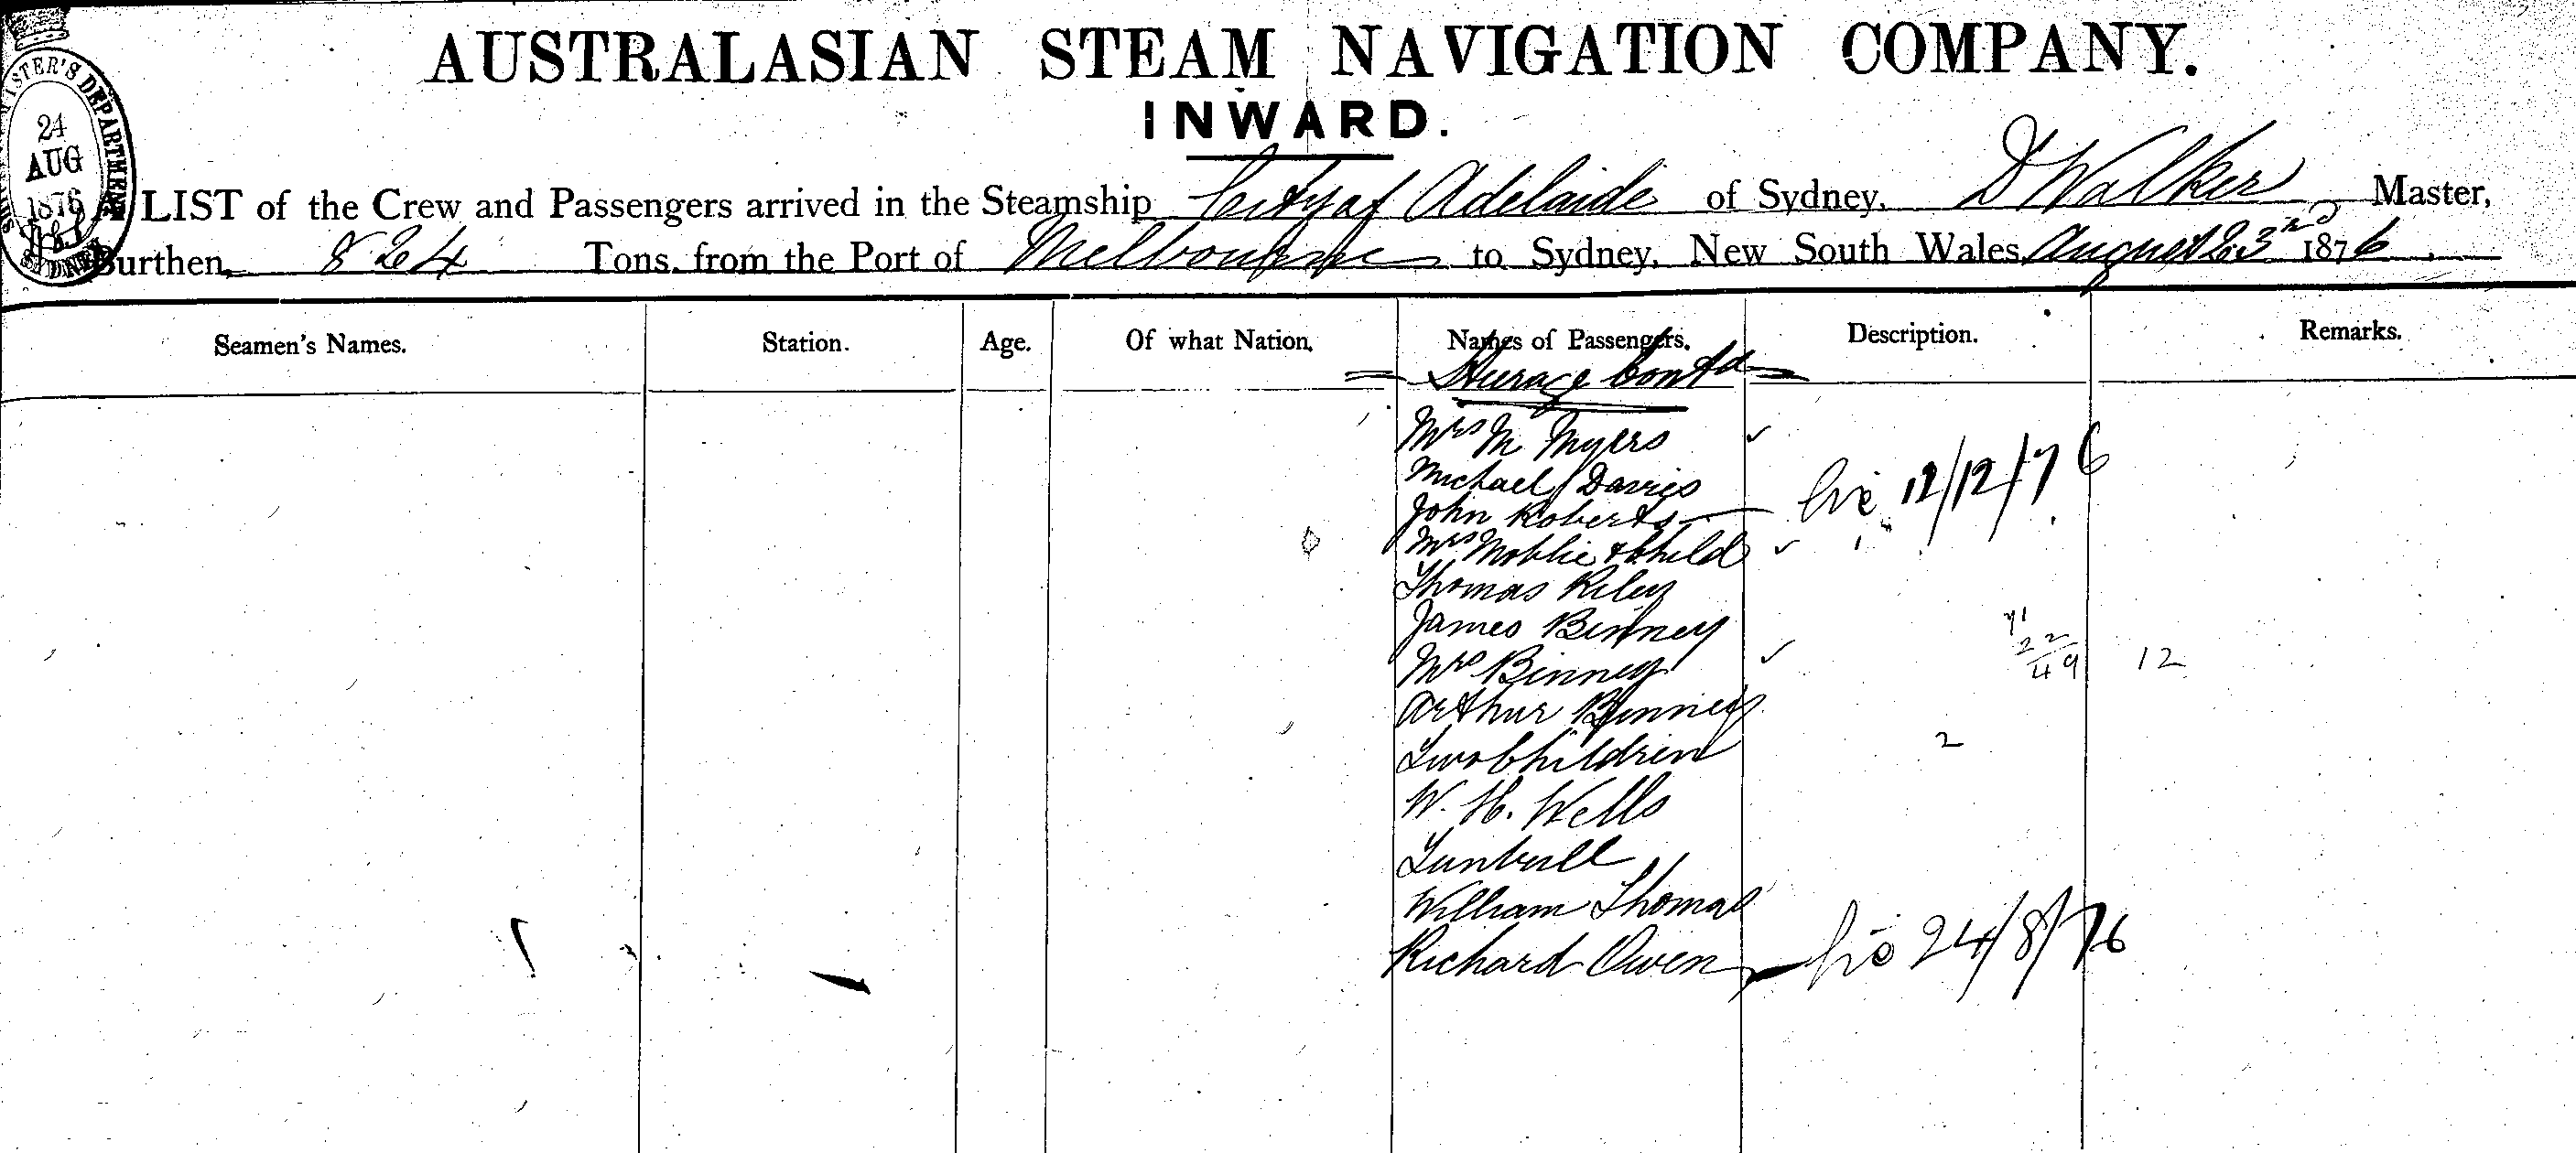 AUSTRALASIAN STEAM NAVIGATION COMPANY.
INWARD.
24
AUG
1876
SYDNEY
A LIST of the Crew and Passengers arrived in the Steamship City of Adelaide of Sydney, D Walker, Master,
Burthen, 824 Tons, from the Port of Melbourne to Sydney, New South Wales August 23rd 1876.
Seamen's Names. Station. Age. Of what Nation. Names of Passengers. Description. Remarks.
Steerage Contd
Mrs M Myers
Michael Davies
John Roberts 12/12/76
Mrs & Child
Thomas Riley
James Binney
Mrs Binney
22
49 12
Arthur Binney
Two Children 2
W. H. Wells
William Thomas
Richard Owen 24/8/76